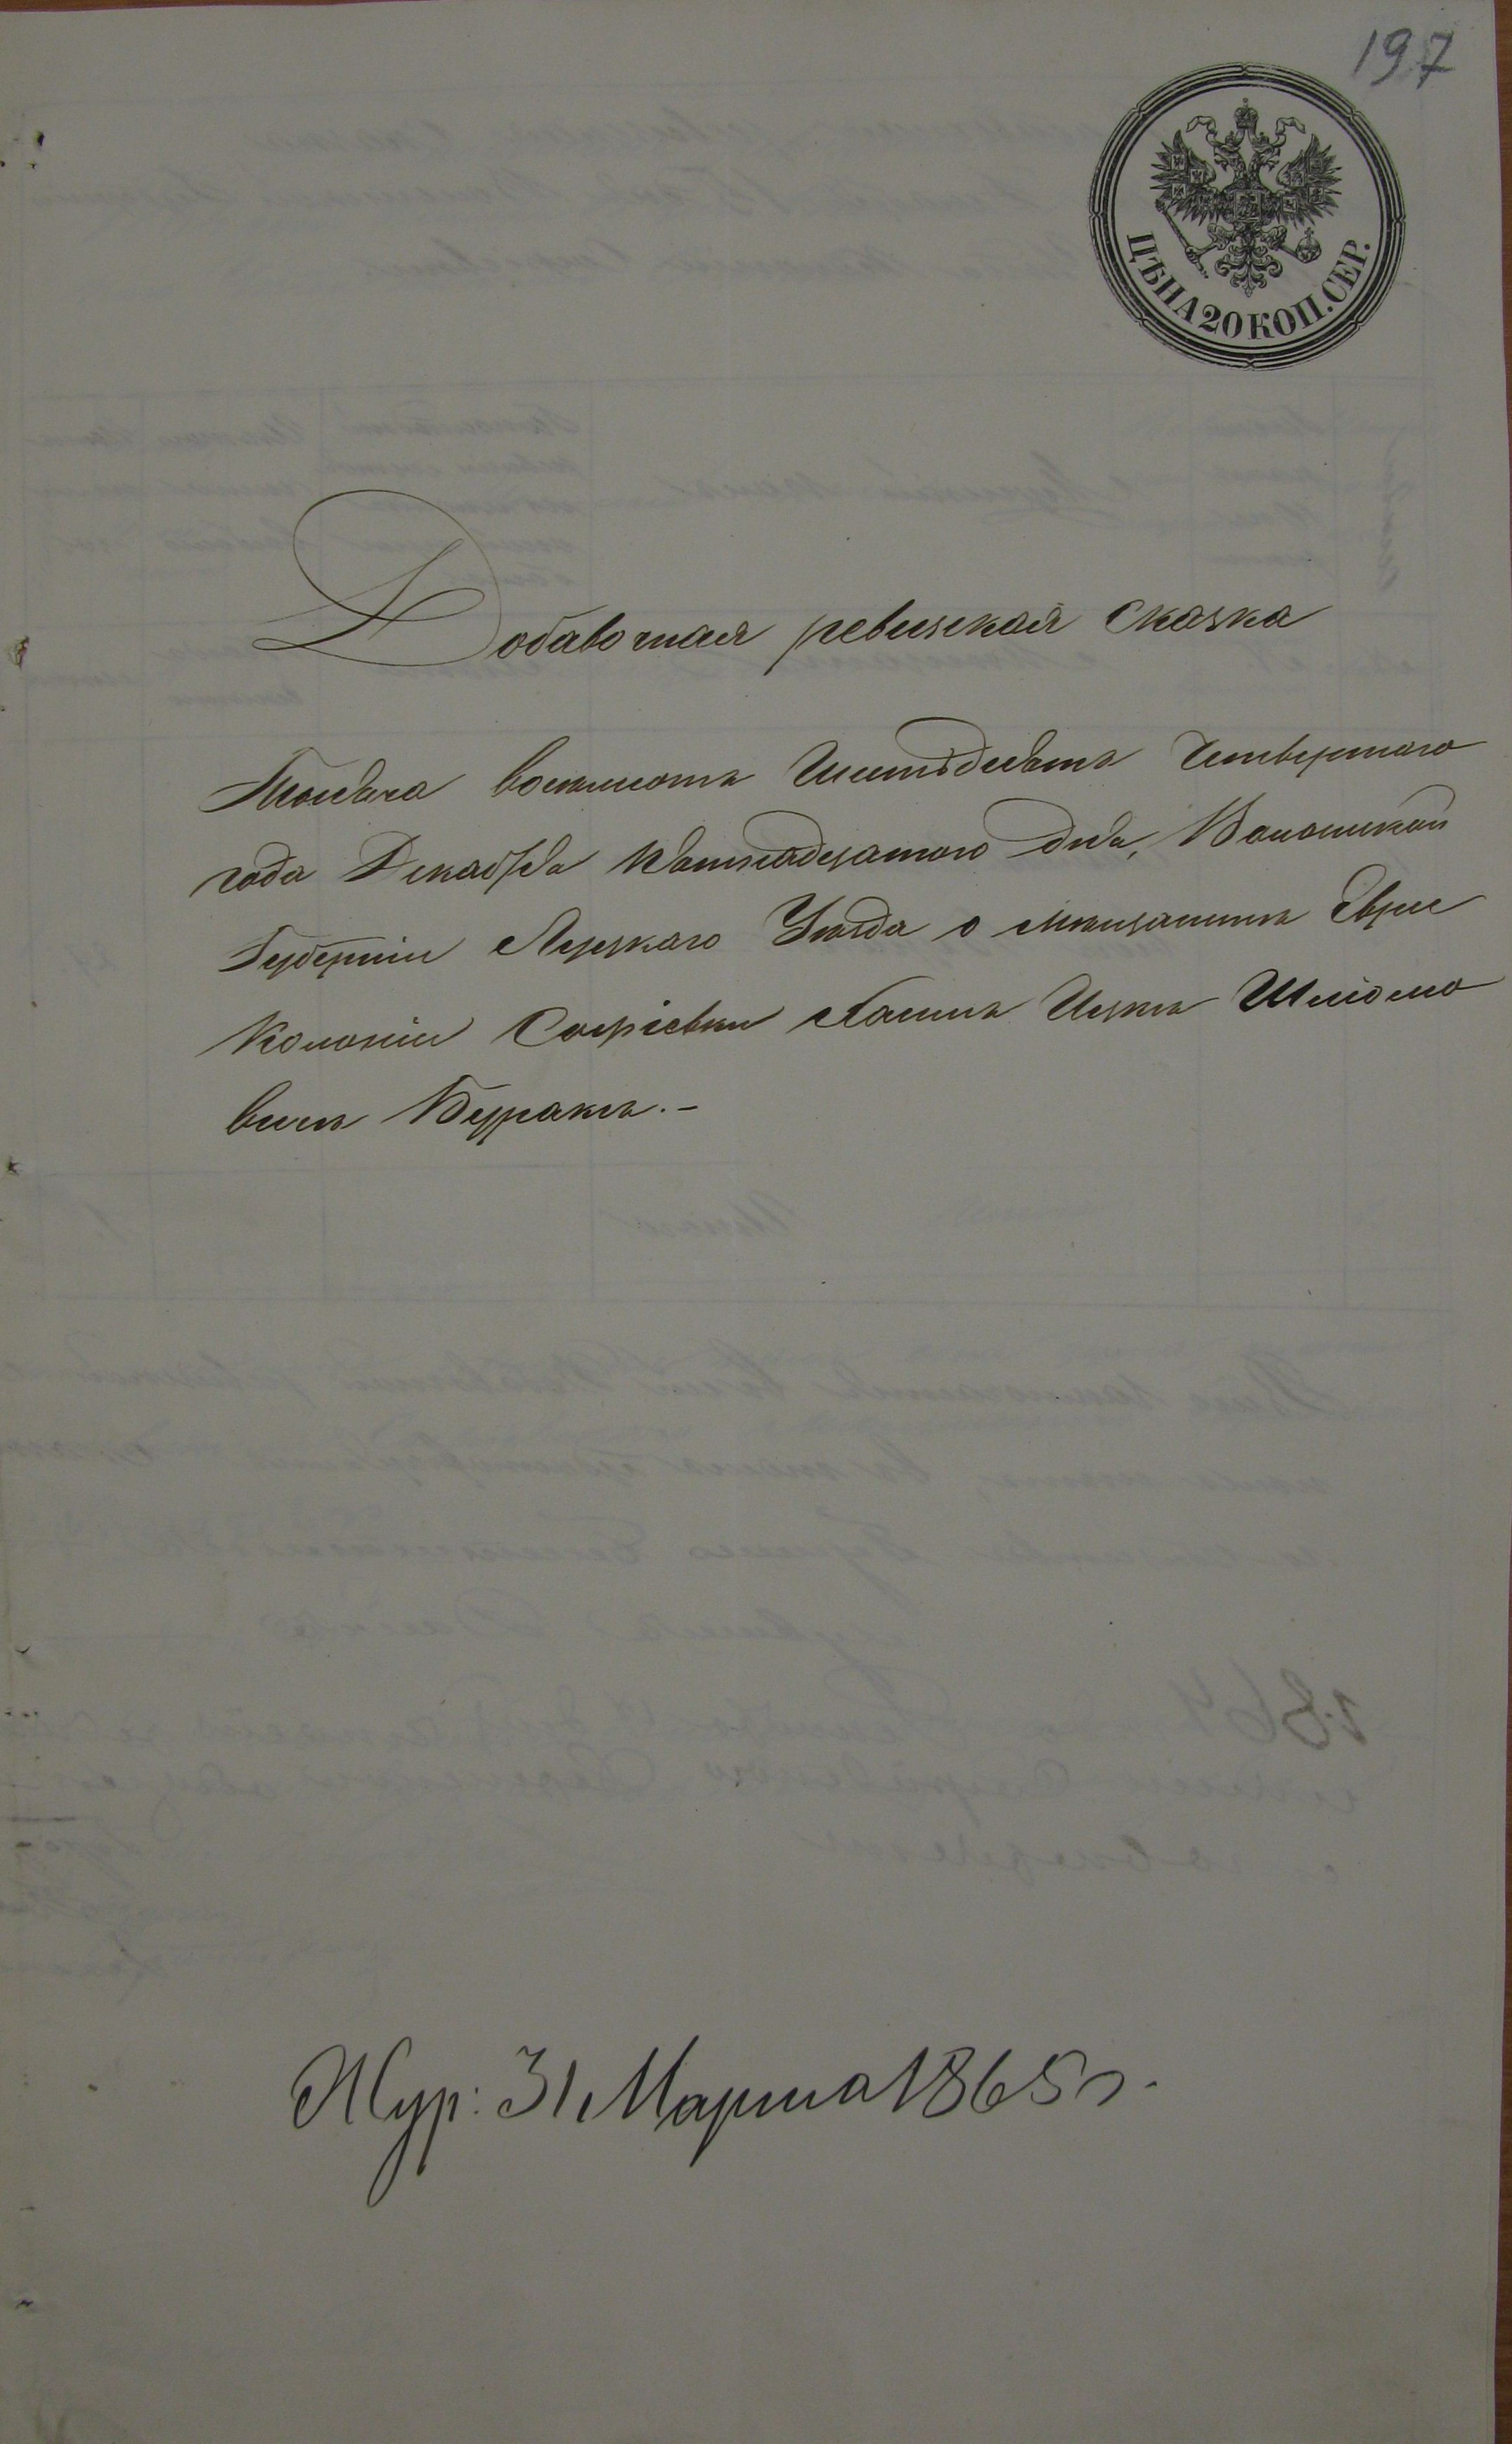 197
ЦѢНА 20 КОП. СЕР.
Добавочная ревизская сказка
Тысяча восемьсотъ Шестьдесятъ Четвертаго
года Декабря пятнадцатого дня, Волынской
Губерніи Луцкаго Уѣзда о мѣщанинѣ Евреѣ
Колоніи Софіевки Хаимѣ Ицкѣ Шліомо
вичѣ Буракъ.-
Жур: 31 Марта 1865 г.